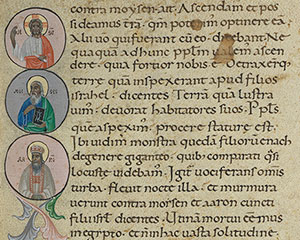 contra moysen. ait. Ascendam et pos
sideamus trā. qm̄ poterim optinere eā
Viri ū qui fuerant cū eo. dicebant. Ne
qua quā ad hunc pp̄lm ualem ascen
dere. quia fortior nobis ē. Detraxerq;
terrę quā inspexerant apud filios
israhel. dicentes. Terrā quā lustra
uim. deuorat habitatores suos. Pp̄ls
quē aspexim. procerę staturę est.
Ibi uidim monstra quędā filiorū enach
de genere giganteo. quib; comparati q̄si
locuste uidebam. Igit̄ uociferans omīs
turba. fleuit nocte illa. et murmura
uerunt contra moisen et aaron cuncti
filii isr̄l dicentes. Utinā mortui eēmus
in egypto. et n̄ in hac uasta solitudine.